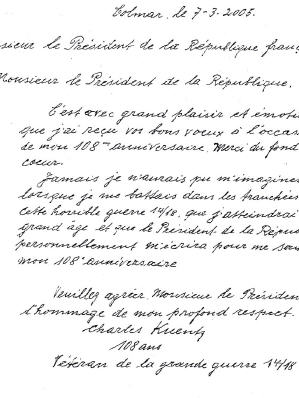 Colmar, le 7-3-2005.
sieur le Président de la République franç
Monsieur le Président de la République.
C'est avec grand plaisir et émoti
que j'ai reçu vos bons voeux à l'occas
de mon 108me anniversaire. Merci du fond
coeur.
Jamais je n'aurais pu m'imagine
lorsque je me battais dans les tranchées
cette horrible guerre 14/18, que j'atteindrai
grand âge et que le Président de la Répu
personnellement m'écrira pour me sou
mon 108me anniversaire
Veuillez agréer, Monsieur le Président
l'hommage de mon profond respect.
Charles Kuentz
108 ans
Vétéran de la grande guerre 14/18